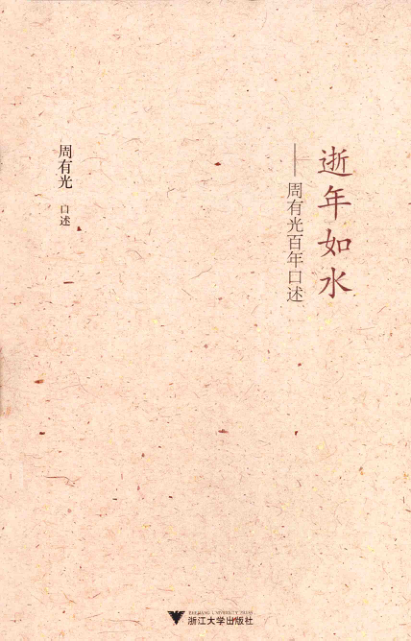 逝年如水
——周有光百年口述
周有光 口述
ZHEJIANG UNIVERSITY PRESS
浙江大学出版社